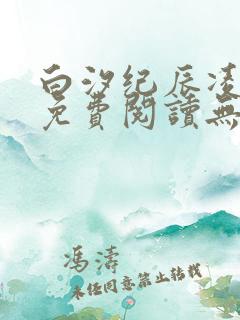 白汐纪辰凌
免費閱讀無
馮濤
未任同意禁止转载